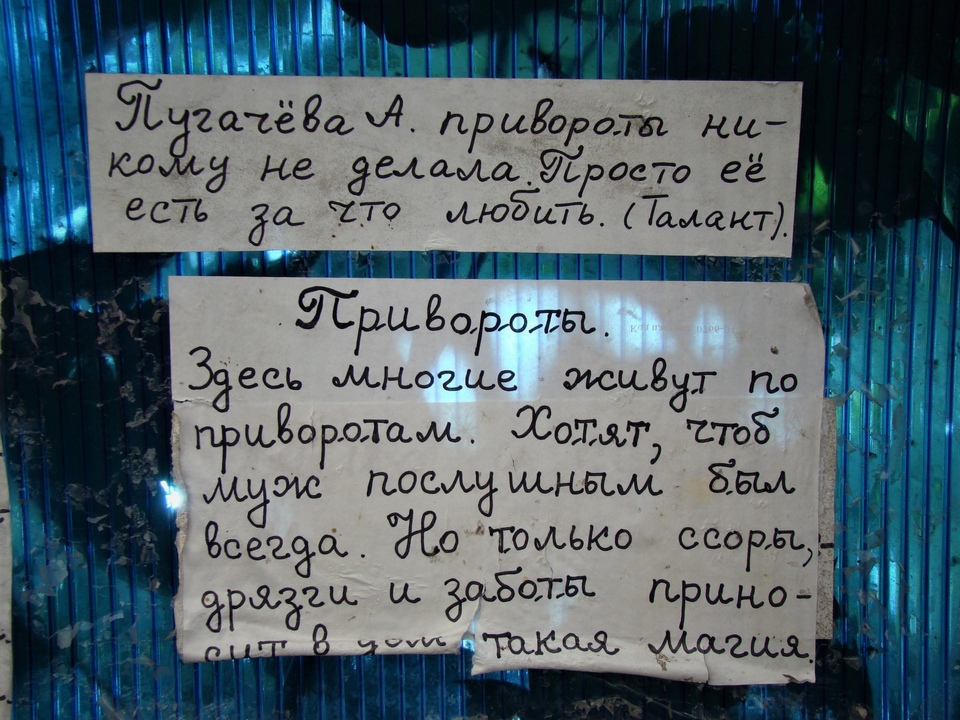 Пугачёва А. привороты ни-
кому не делала. Просто её
есть за что любить. (Талант).
Привороты.
Здесь многие живут по
приворотам. Хотят, чтоб
муж послушным был
всегда. Но только ссоры,
дрязги и заботы прино-
сит в дом такая магия.